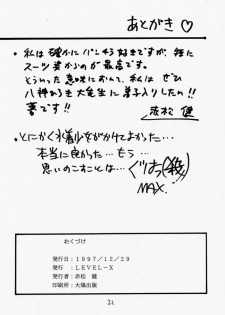 あとがき♡
・私は確かにパンチラ好きですが、特に
スーツ姿からのが最高です。
そういった意味において、私は ぜひ
八神ひろき大先生に弟子入りしたい!!
夢です!!
赤松 健
・とにかく水着少女がかけてよかった…
本当に良かった… もう…
思いのこすことは…
MAX.
おくづけ
発行日:1997/12/29
発行:LEVEL-X
発行者:赤松 健
印刷所:大陽出版
22